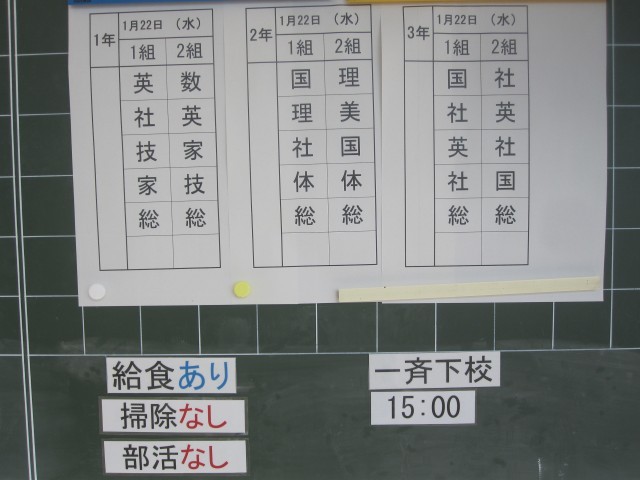 1年 1月22日 （水）
1組 2組
英 数
社 英
技 家
家 技
総 総
2年 1月22日 （水）
1組 2組
国 理
理 美
社 国
体 体
総 総
3年 1月22日 （水）
1組 2組
国 社
社 英
英 社
社 国
総 総
給食あり
掃除なし
部活なし
一斉下校
15:00